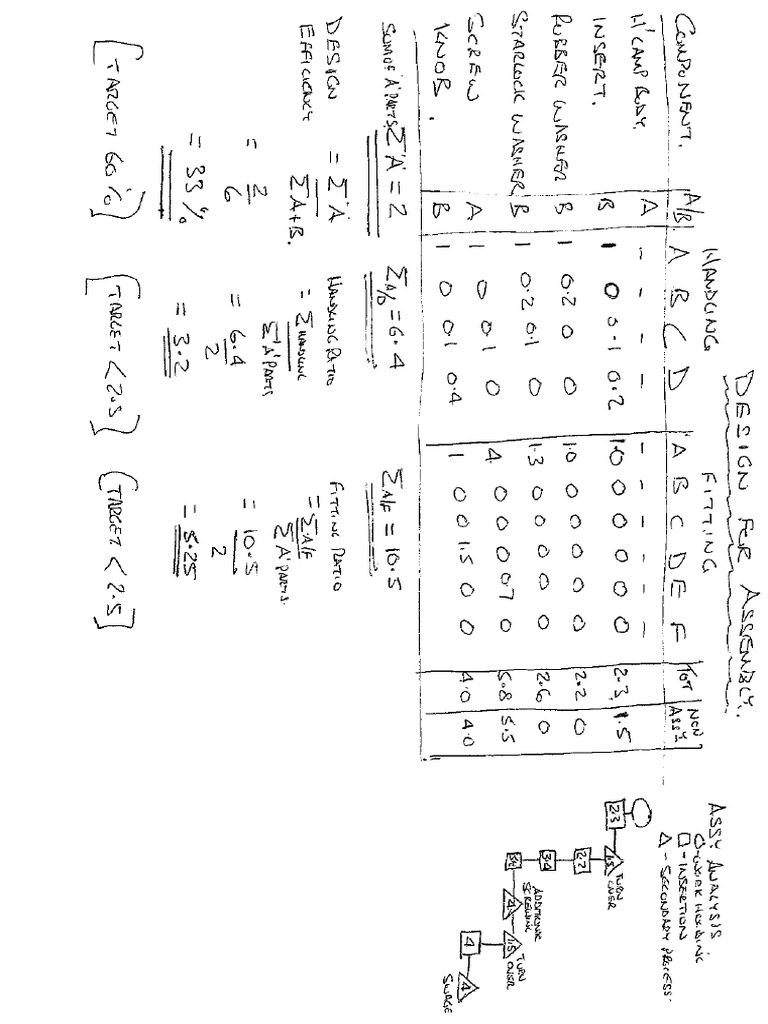 DESIGN FOR ASSEMBLY.
HANDLING FITTING
COMPONENT. A/B. A B C D A B C D E F TOT NON ASSY
H'CAMP BODY. A - - - - - - - - - -
INSERT. B 1 0 0.1 0.2 1.0 0 0 0 0 0 2.3 1.5
RUBBER WASHER B 1 0.2 0 0 1.0 0 0 0 0 0 2.2 0
STARLOCK WASHER B 1 0.2 0.1 0 1.3 0 0 0 0 0 2.6 0
SCREW A 1 0 0.1 0 4 0 0 0 0.7 0 5.8 5.5
KNOB. B 1 0 0.1 0.4 1 0 0 1.5 0 0 4.0 4.0
SUM OF 'A' PARTS. Σ'A' = 2 ΣA/D = 6.4 ΣA/F = 10.5
DESIGN EFFICIENCY = Σ'A' / ΣA+B.
= 2/6
= 33%
[TARGET 60%]
HANDLING RATIO
= Σ HANDLING / Σ'A' PARTS
= 6.4/2
= 3.2
[TARGET < 2.5]
FITTING RATIO
= ΣA/F / Σ'A' PARTS.
= 10.5/2
= 5.25
[TARGET < 2.5]
ASSY ANALYSIS.
O-WORK HOLDING.
□-INSERTION
△-SECONDARY PROCESS.
2.3 1.5 TURN OVER
2.2
3.4
4 ADDITIONAL SCREWING
1.5 TURN OVER
4 4